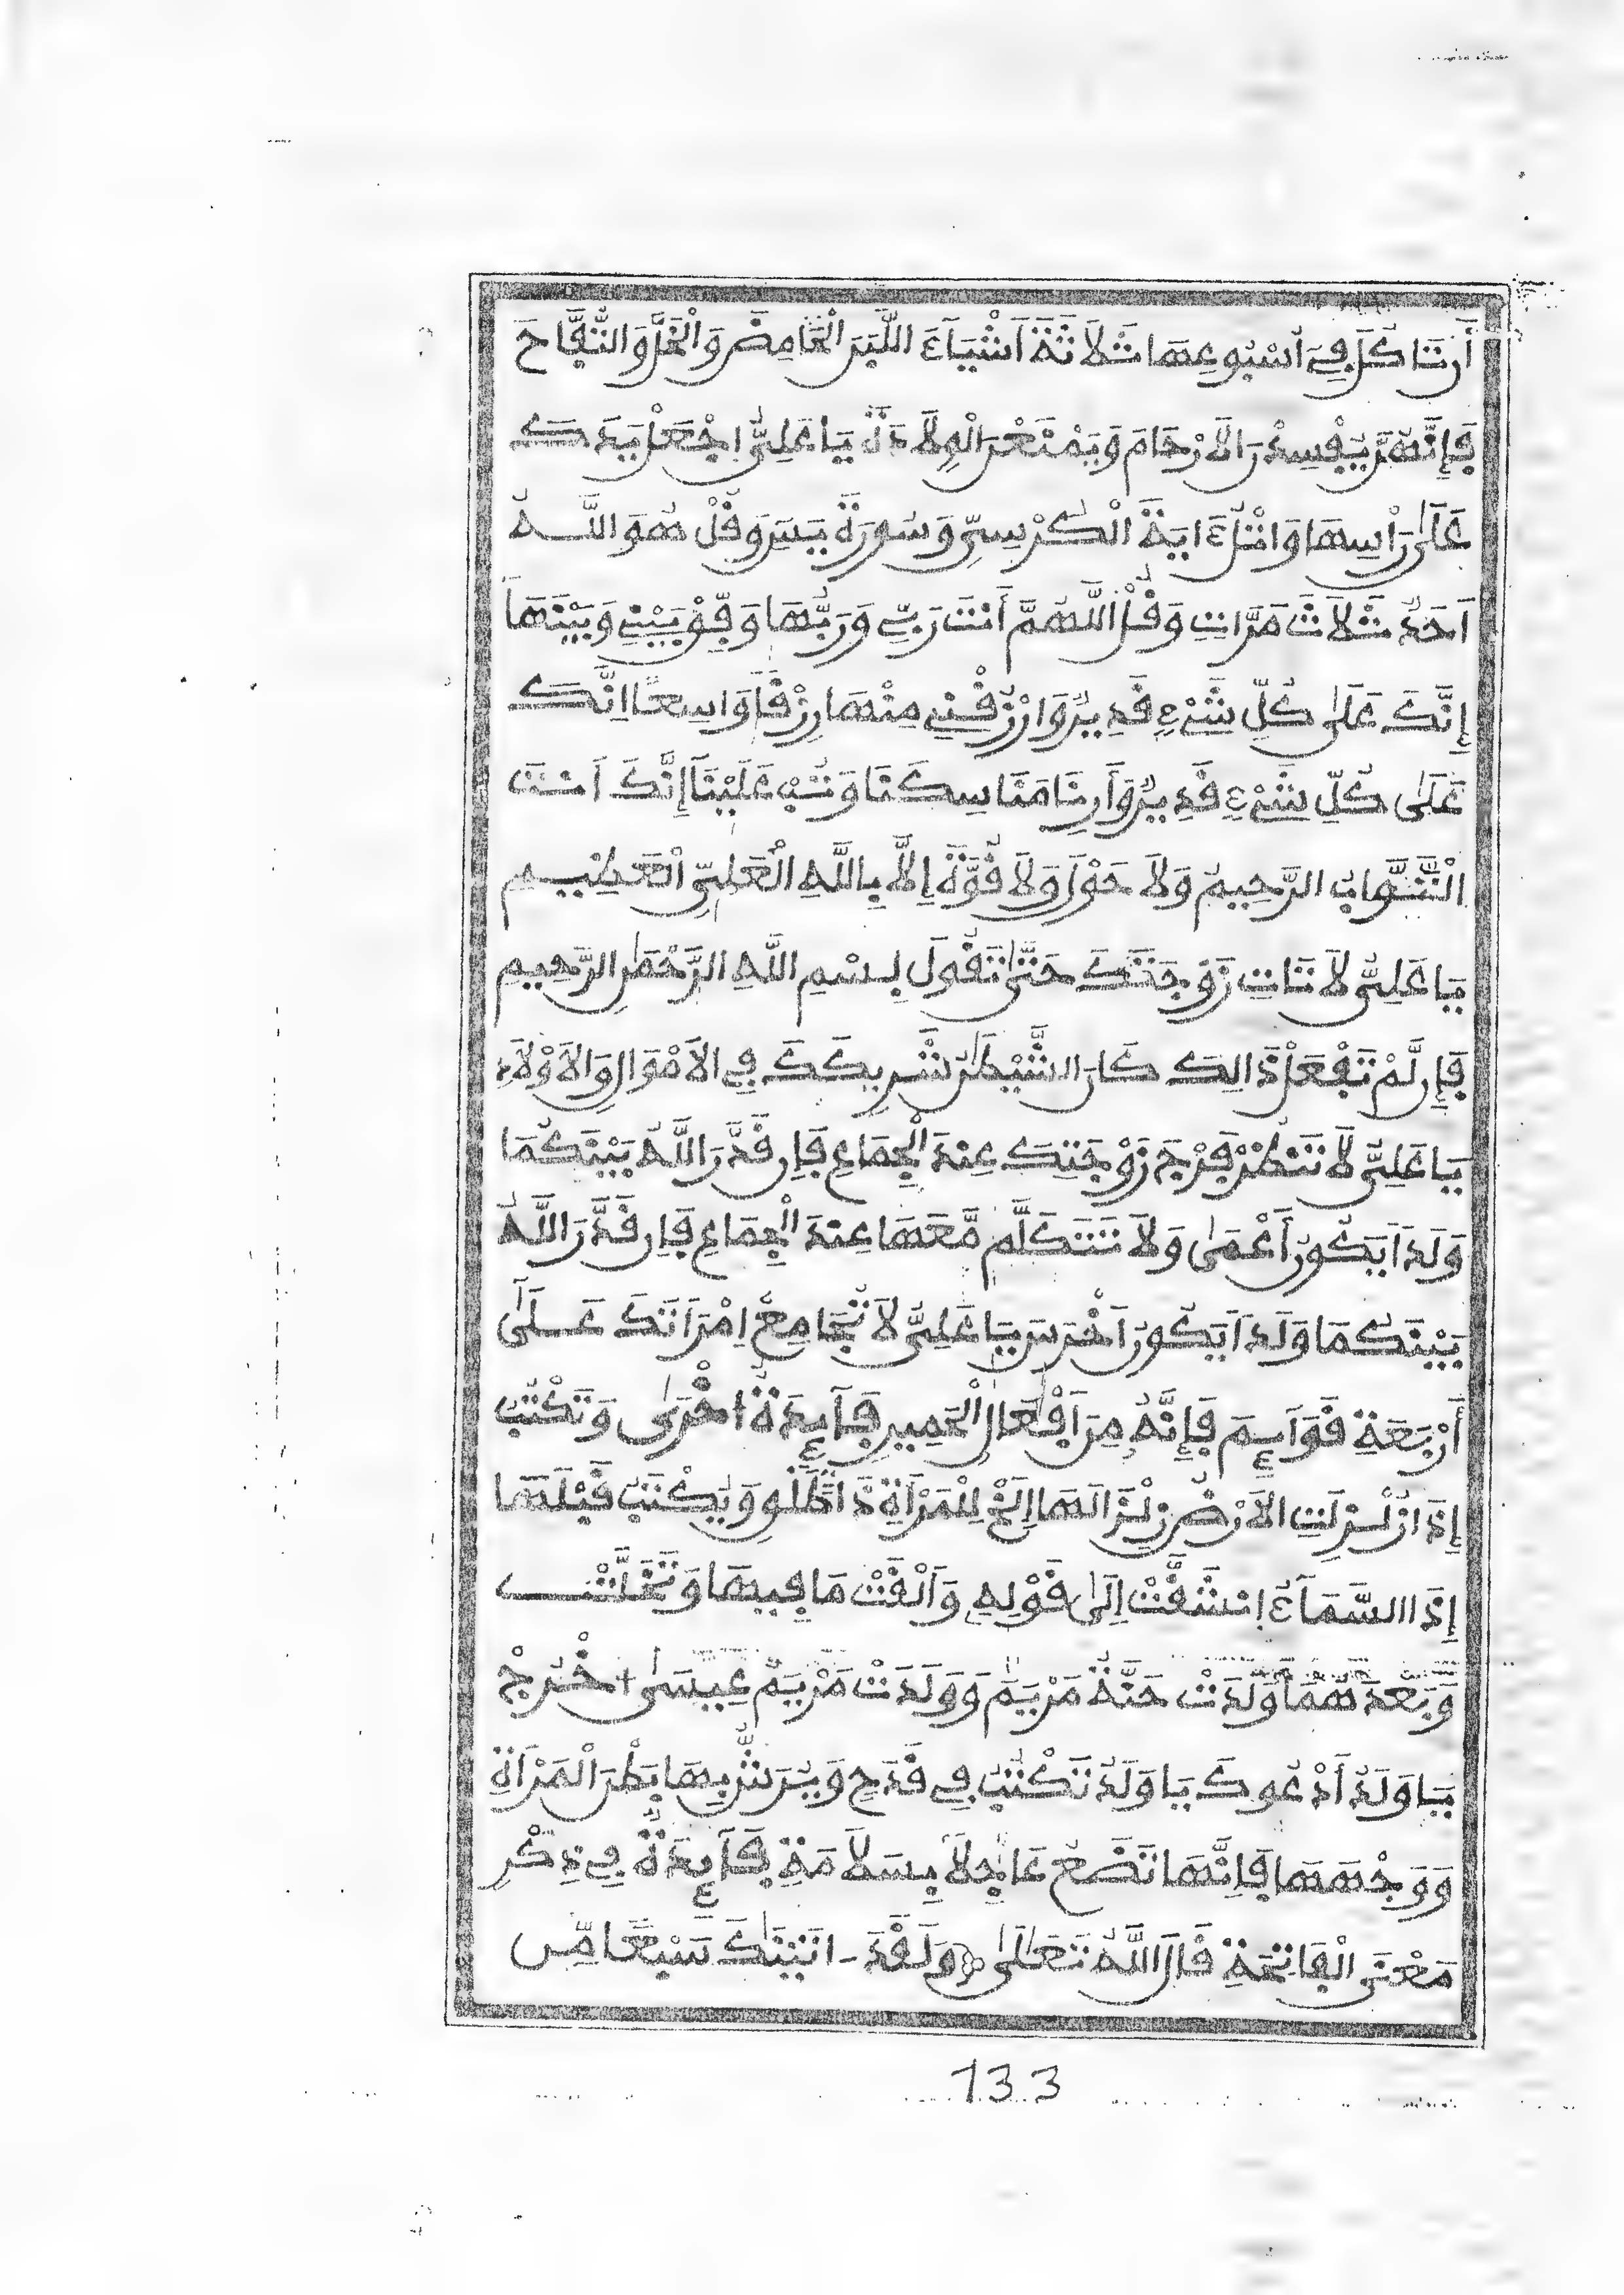 أَن تَاكُلَ فِي أُسْبُوعِهَا ثَلَاثَةَ أَشْيَاءَ اللَّبَنَ الْحَامِضَ وَالْخَلَّ وَالتُّفَّاحَ
فَإِنَّهُنَّ يُفْسِدْنَ الَارْحَامَ وَيَمْنَعْنَ الْوِلَادَةَ يَا عَلِيُّ اِجْعَلْ يَدَكَ
عَلَى رَاْسِهَا وَاتْلُ ءَايَةَ الْكُرْسِيِّ وَسُورَةَ يَسِ وَقُلْ هُوَ اللَّهُ
أَحَدٌ ثَلَاثَ مَرَّاتٍ وَقُلْ اللَّهُمَّ أَنتَ رَبِّي وَرَبُّهَا وَفِّقْ بَيْنِي وَبَيْنَهَا
إِنَّكَ عَلَى كُلِّ شَيْءٍ قَدِيرٌ وَارْزُقْنِي مِنْهَا رِزْقًا وَاسِعًا اِنَّكَ
عَلَى كُلِّ شَيْءٍ قَدِيرٌ وَأَرِنَا مَنَاسِكَنَا وَتُبْ عَلَيْنَا إِنَّكَ أَنتَ
التَّوَّابُ الرَّحِيمُ وَلَا حَوْلَ وَلَا قُوَّةَ إِلَّا بِاللَّهِ الْعَلِيِّ الْعَظِيمِ
يَا عَلِيُّ لَا تَاتِ زَوْجَتَكَ حَتَّى تَقُولَ بِسْمِ اللَّهِ الرَّحْمَنِ الرَّحِيمِ
فَإِن لَّمْ تَفْعَلْ ذَالِكَ كَانَ الشَّيْطَنُ شَرِيكَكَ فِي الَامْوَالِ وَالَاوْلَادِ
يَا عَلِيُّ لَا تَنظُرْ فَرْجَ زَوْجَتِكَ عِندَ الْجِمَاعِ فَإِن قَدَّرَ اللَّهُ بَيْنَكُمَا
وَلَدًا يَكُونُ أَعْمَى وَلَا تَتَكَلَّم مَّعَهَا عِندَ الْجِمَاعِ فَإِن قَدَّرَ اللَّهُ
بَيْنَكُمَا وَلَدًا يَكُونُ أَخْرَسَ يَا عَلِيُّ لَا تُجَامِعْ اِمْرَأَتَكَ عَلَى
أَرْبَعَةِ قَوَائِمَ فَإِنَّهُ مِنَ أَفْعَالِ الْحَمِيرِ فَآئِدَةٌ اخْرَى وَتَكْتُبُ
إِذَا زُلْزِلَتِ الَارْضُ زِلْزَالَهَا إِلَخْ لِلْمَرْأَةِ ذَا الطَّلْقِ وَيُكْتَبُ قَبْلَهَا
إِذَا السَّمَآءُ اِنشَقَّتْ اِلَى قَوْلِهِ وَأَلْقَتْ مَا فِيهَا وَتَخَلَّتْ
وَبَعْدَهُمَا وَلَدَتْ حَنَّةُ مَرْيَمَ وَوَلَدَتْ مَرْيَمُ عِيسَى اخْرُجْ
يَا وَلَدُ أَدْعُوكَ يَا وَلَدُ تَكْتُبُ فِي قَدَحٍ وَيُرَشُّ بِهَا بَطْنَ الْمَرْأَةِ
وَوَجْهَهَا فَإِنَّهَا تَضَعُ عَاجِلًا بِسَلَامَةٍ فَآئِدَةٌ فِي ذِكْرِ
مَعْنَى الْفَاتِحَةِ قَالَ اللَّهُ تَعَالَى وَلَقَدَ اتَيْنَكَ سَبْعًا مِّنَ
133